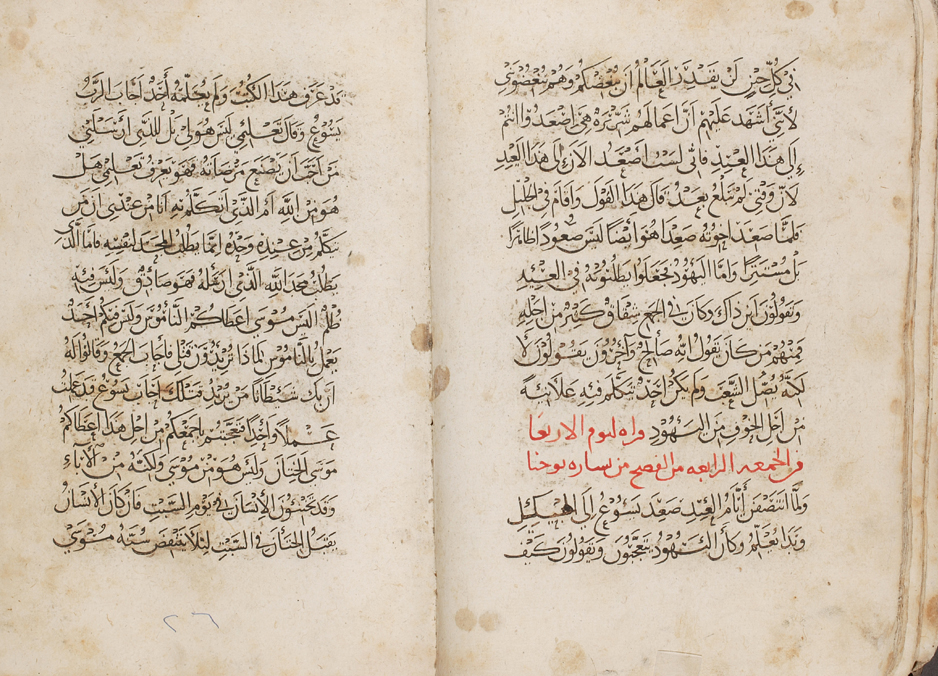 في كل حين لن يقدر العالم ان يبغضكم وهم يبغضوني
لأنني اشهد عليهم ان اعمالهم شريره هي اصعدوا انتم
إلى هذا العيد فاني لست اصعد الان إلى هذا العيد
لان وقتي لم يبلغ بعد قال هذا القول واقام في الجليل
فلما صعد اخوته صعد هو ايضا ليس صعودا ظاهرا
بل مستترا واما اليهود فجعلوا يطلبونه في العيد
ويقولون اين ذاك وكان في الجمع شقاق كثير من اجله
فمنهم من كان يقول انه صالح وآخرون يقولون لا
لكنه يضل الشعب ولم يكن احد يتكلم فيه علانية
من اجل الخوف من اليهود قراه ليوم الاربعا
من الجمعه الرابعه من الفصح من بساره يوحنا
ولما انتصفن أيام العيد صعد يسوع إلى الهيكل
وبدا يعلم وكان اليهود يتعجبون ويقولون كيف
قد عرف هذا الكتب ولم يعلمه أحد أجاب الرب
يسوع وقال تعليمي ليس هو لي بل للذي ارسلني
من احب ان يصنع مرضاته فهو يعرف تعليمي هل
هو من الله أم الذي أتكلم به انا من عندي ان من
يتكلم من عنده وحده إنما يطلب المجد لنفسه فاما الذي
يطلب مجد الله الذي ارسله فهو صادق وليس فيه
ظلم أليس موسى اعطاكم الناموس وليس منكم أحد
يعمل بالناموس لماذا تريدون قتلي فأجاب الجمع وقالوا له
ان بك شيطانا من يريد قتلك أجاب يسوع قد عملت
عملا واحدا فعجبتم باجمعكم من اجل هذا اعطاكم
موسى الختان وليس هو من موسى ولكنه من الآباء
وقد تختنون الإنسان في يوم السبت فان كان الانسان
يقبل الختان في السبت لئلا تنقض سنة موسى
٢٦